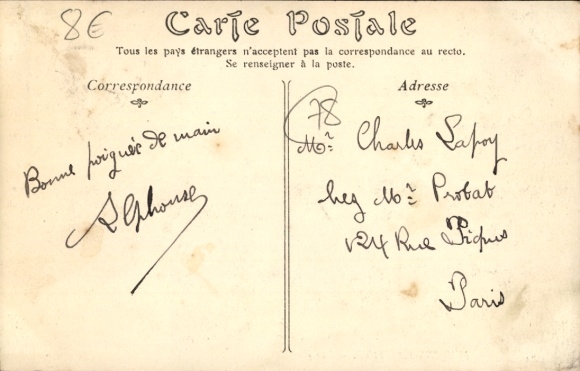 8€
Carte Postale
Tous les pays étrangers n'acceptent pas la correspondance au recto.
Se renseigner à la poste.
Correspondance
Adresse
78
Bonne poignée de main
Alphonse
Mr Charles Lapoy
hez Mr Probat
124 Rue Picpus
Paris